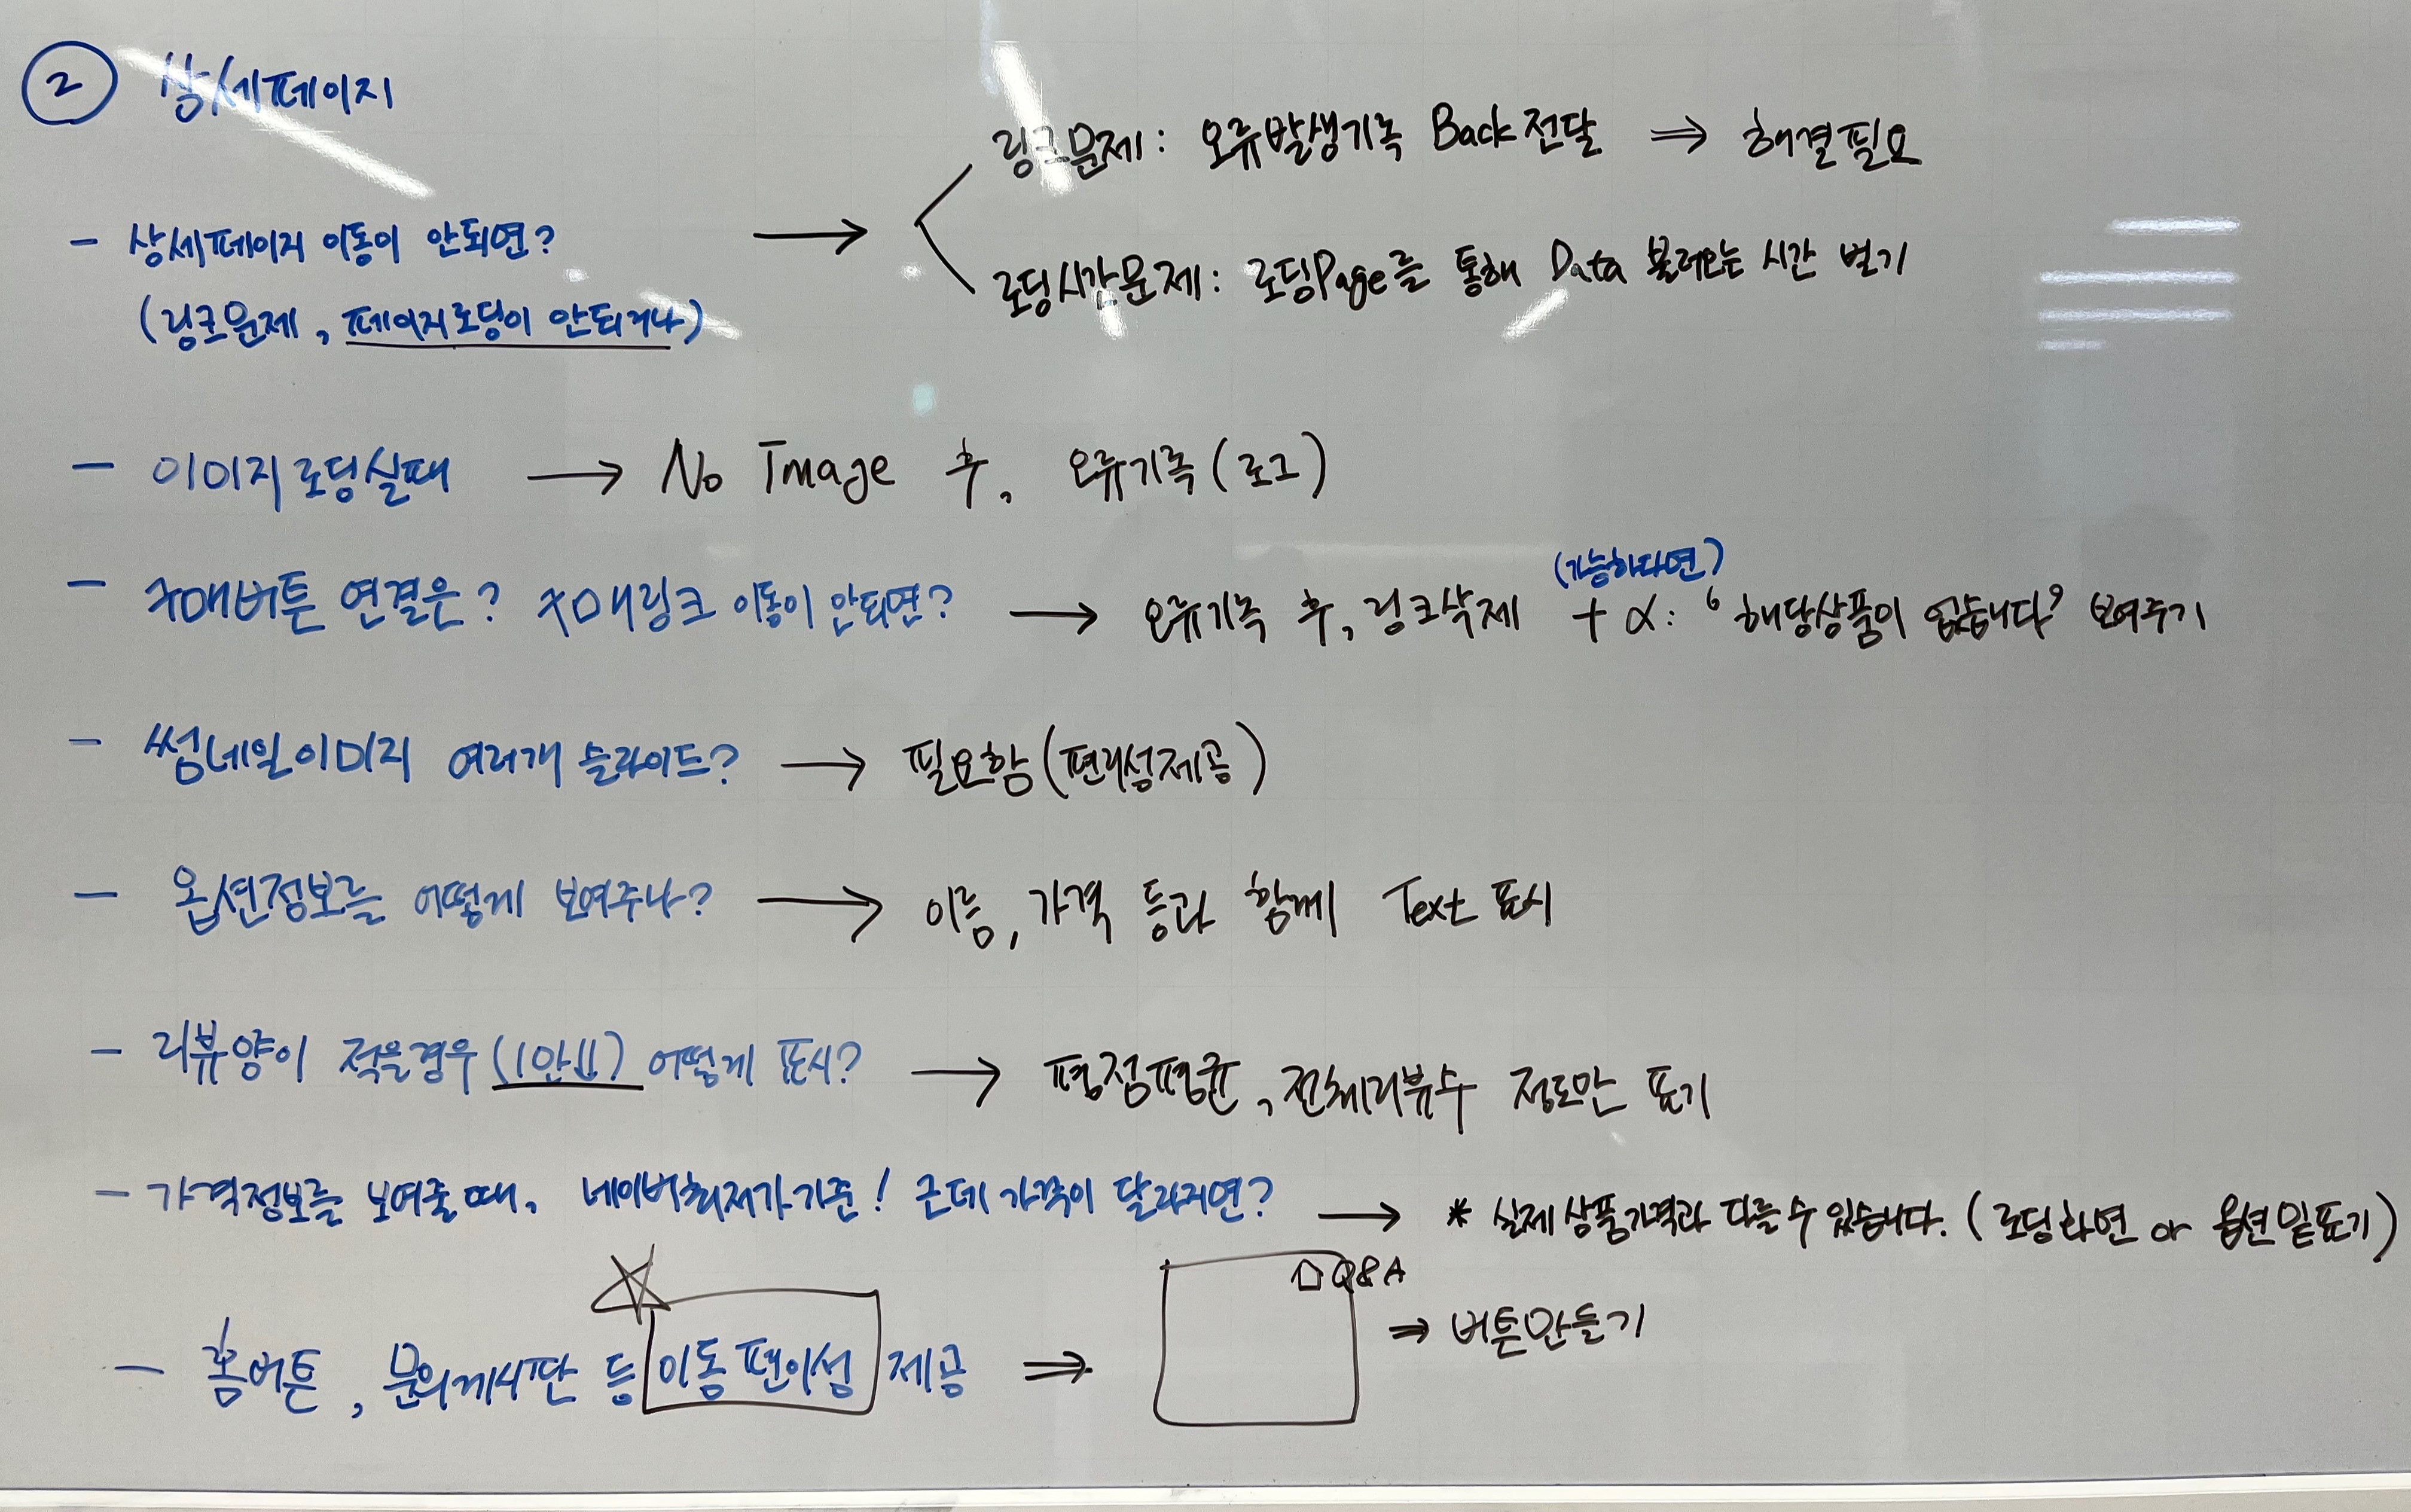 ② 상세페이지
- 상세페이지 이동이 안되면? →
(링크문제, 페이지로딩이 안되거나)
링크문제: 오류발생기록 Back전달 ⇒ 해결필요
로딩시간문제: 로딩Page를 통해 Data 불러오는 시간 벌기
- 이미지로딩실패 → No Image 후, 오류기록(로그)
(가능하다면)
- 구매버튼 연결은? 구매링크 이동이 안되면? → 오류기록 후, 링크삭제 + α: '해당상품이 없습니다' 보여주기
- 썸네일이미지 여러개 슬라이드? → 필요함(편리성제공)
- 옵션정보를 어떻게 보여주나? → 이름, 가격 등과 함께 Text 표시
- 리뷰양이 적을경우(1만↓↓) 어떻게 표시? → 평점평균, 전체리뷰수 정도만 표기
- 가격정보를 보여줄때, 네이버최저가기준! 근데 가격이 달라지면? → * 실제 상품가격과 다를 수 있습니다. (로딩화면 or 옵션밑표기)
Q&A
- 홈버튼, 문의게시판 등 이동편이성 제공 ⇒ ⇒ 버튼만들기